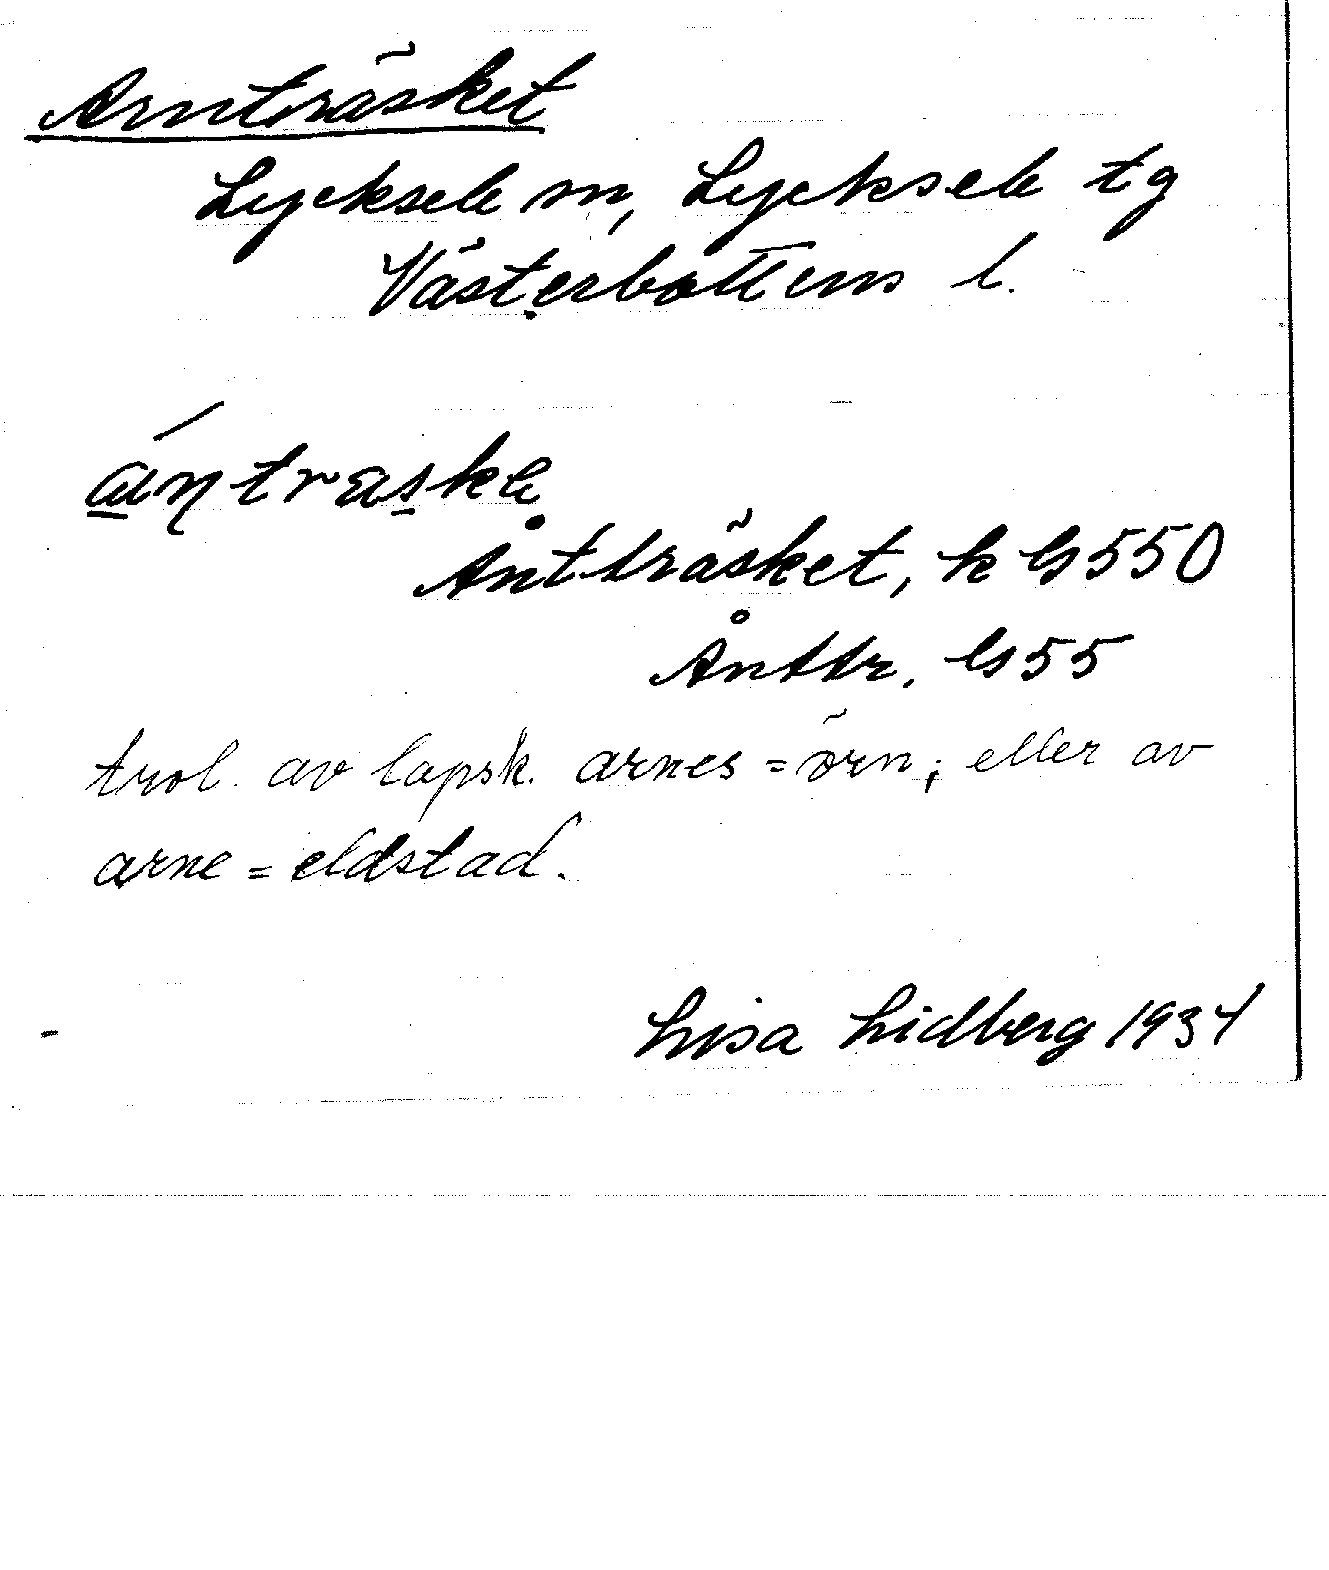 Arnträsket
Lycksele sn, Lycksele tg
Västerbottens l.
Åntträsket, k Gs 550
Ånttr. Gs 55
trol. av lapsk. arnes = örn; eller av
arne = eldstad.
Lisa Lidberg 1934